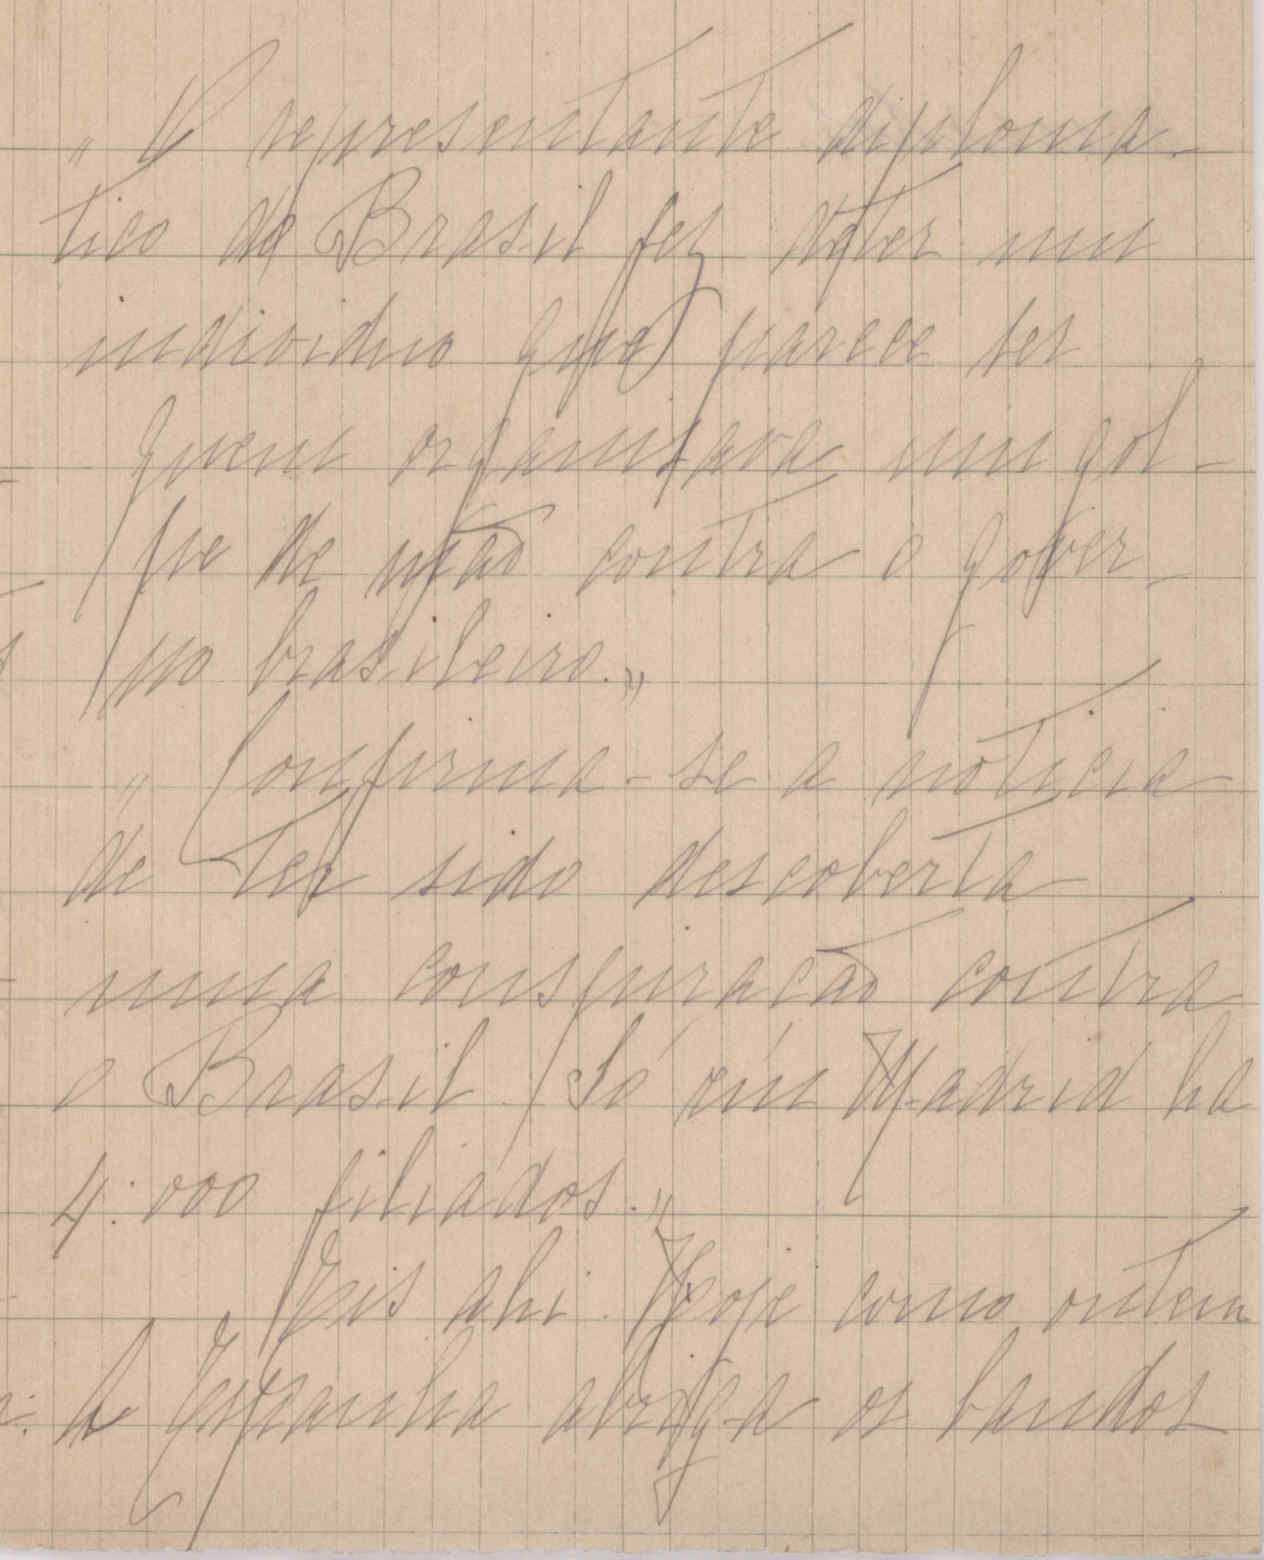 „ O representante diploma-
tico do Brasil fez deter um
individuo que parece ser
quem organisava um gol-
pe de mão contra o gover-
no brasileiro.„
„ Confirma-se a noticia
de ter sido descoberta
uma conspiracão contra
o Brasil. Só em Madrid ha
4:000 filiados.„
Eis ahi. Hoje como ontem
A Espanha abriga os bandos